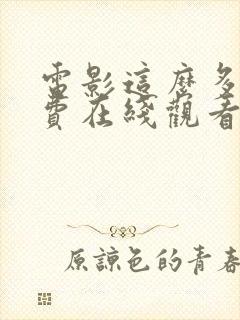 電影這麼多
費在綫觀看
原諒色的青春